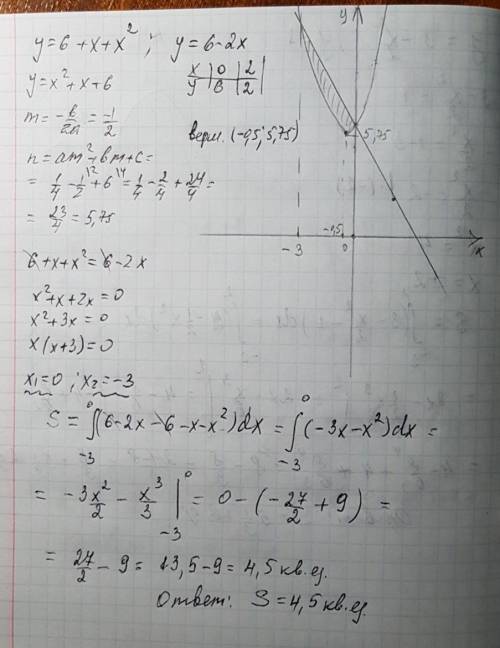 y=6+x+x² ; y=6-2x
y=x²+x+6
x | 0 | 2 |
y | 6 | 2 |
m = -b/2a = -1/2
верш. (-0,5; 5,75)
n = am²+bm+c =
= 1/4 - 1/2 + 6 = 1/4 - 2/4 + 24/4 =
= 23/4 = 5,75
6+x+x² = 6-2x
x²+x+2x=0
x²+3x=0
x(x+3)=0
x₁=0 ; x₂=-3
y
5,75
-0,5
-3
0
x
S = ∫₋₃⁰ (6-2x-6-x-x²)dx = ∫₋₃⁰ (-3x-x²)dx =
= -3x²/2 - x³/3 |₋₃⁰ = 0-(-27/2+9) =
= 27/2 - 9 = 13,5-9 = 4,5 кв.ед.
Ответ: S=4,5 кв.ед.